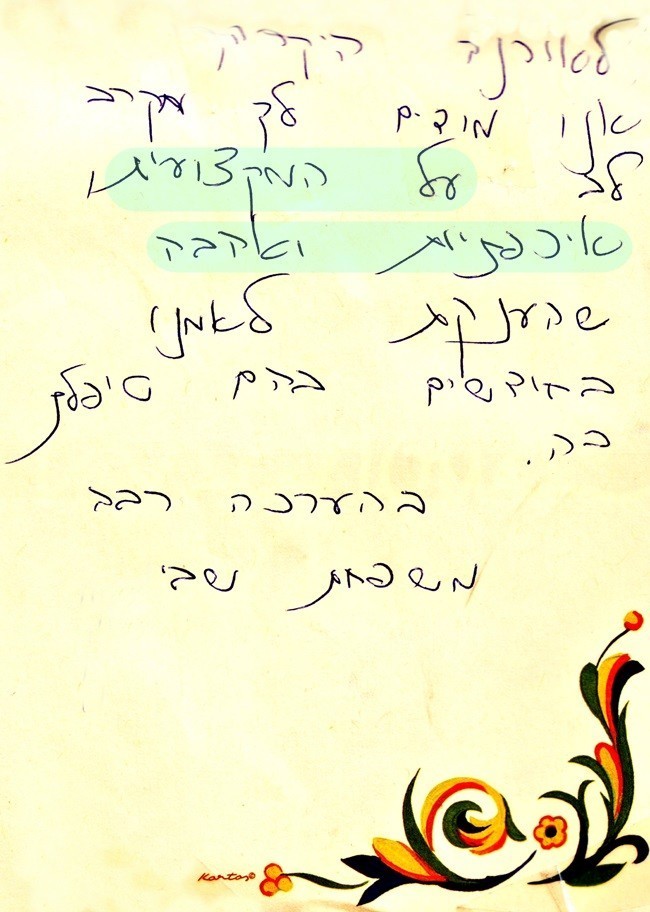 היקרה
אנו מודים לך מקרב
לב על המקצועיות,
איכפתיות ואהבה
שהענקת לאמנו
בחודשים בהם טיפלת
בה.
בהערכה רבה
משפחת שבי
Kartos©